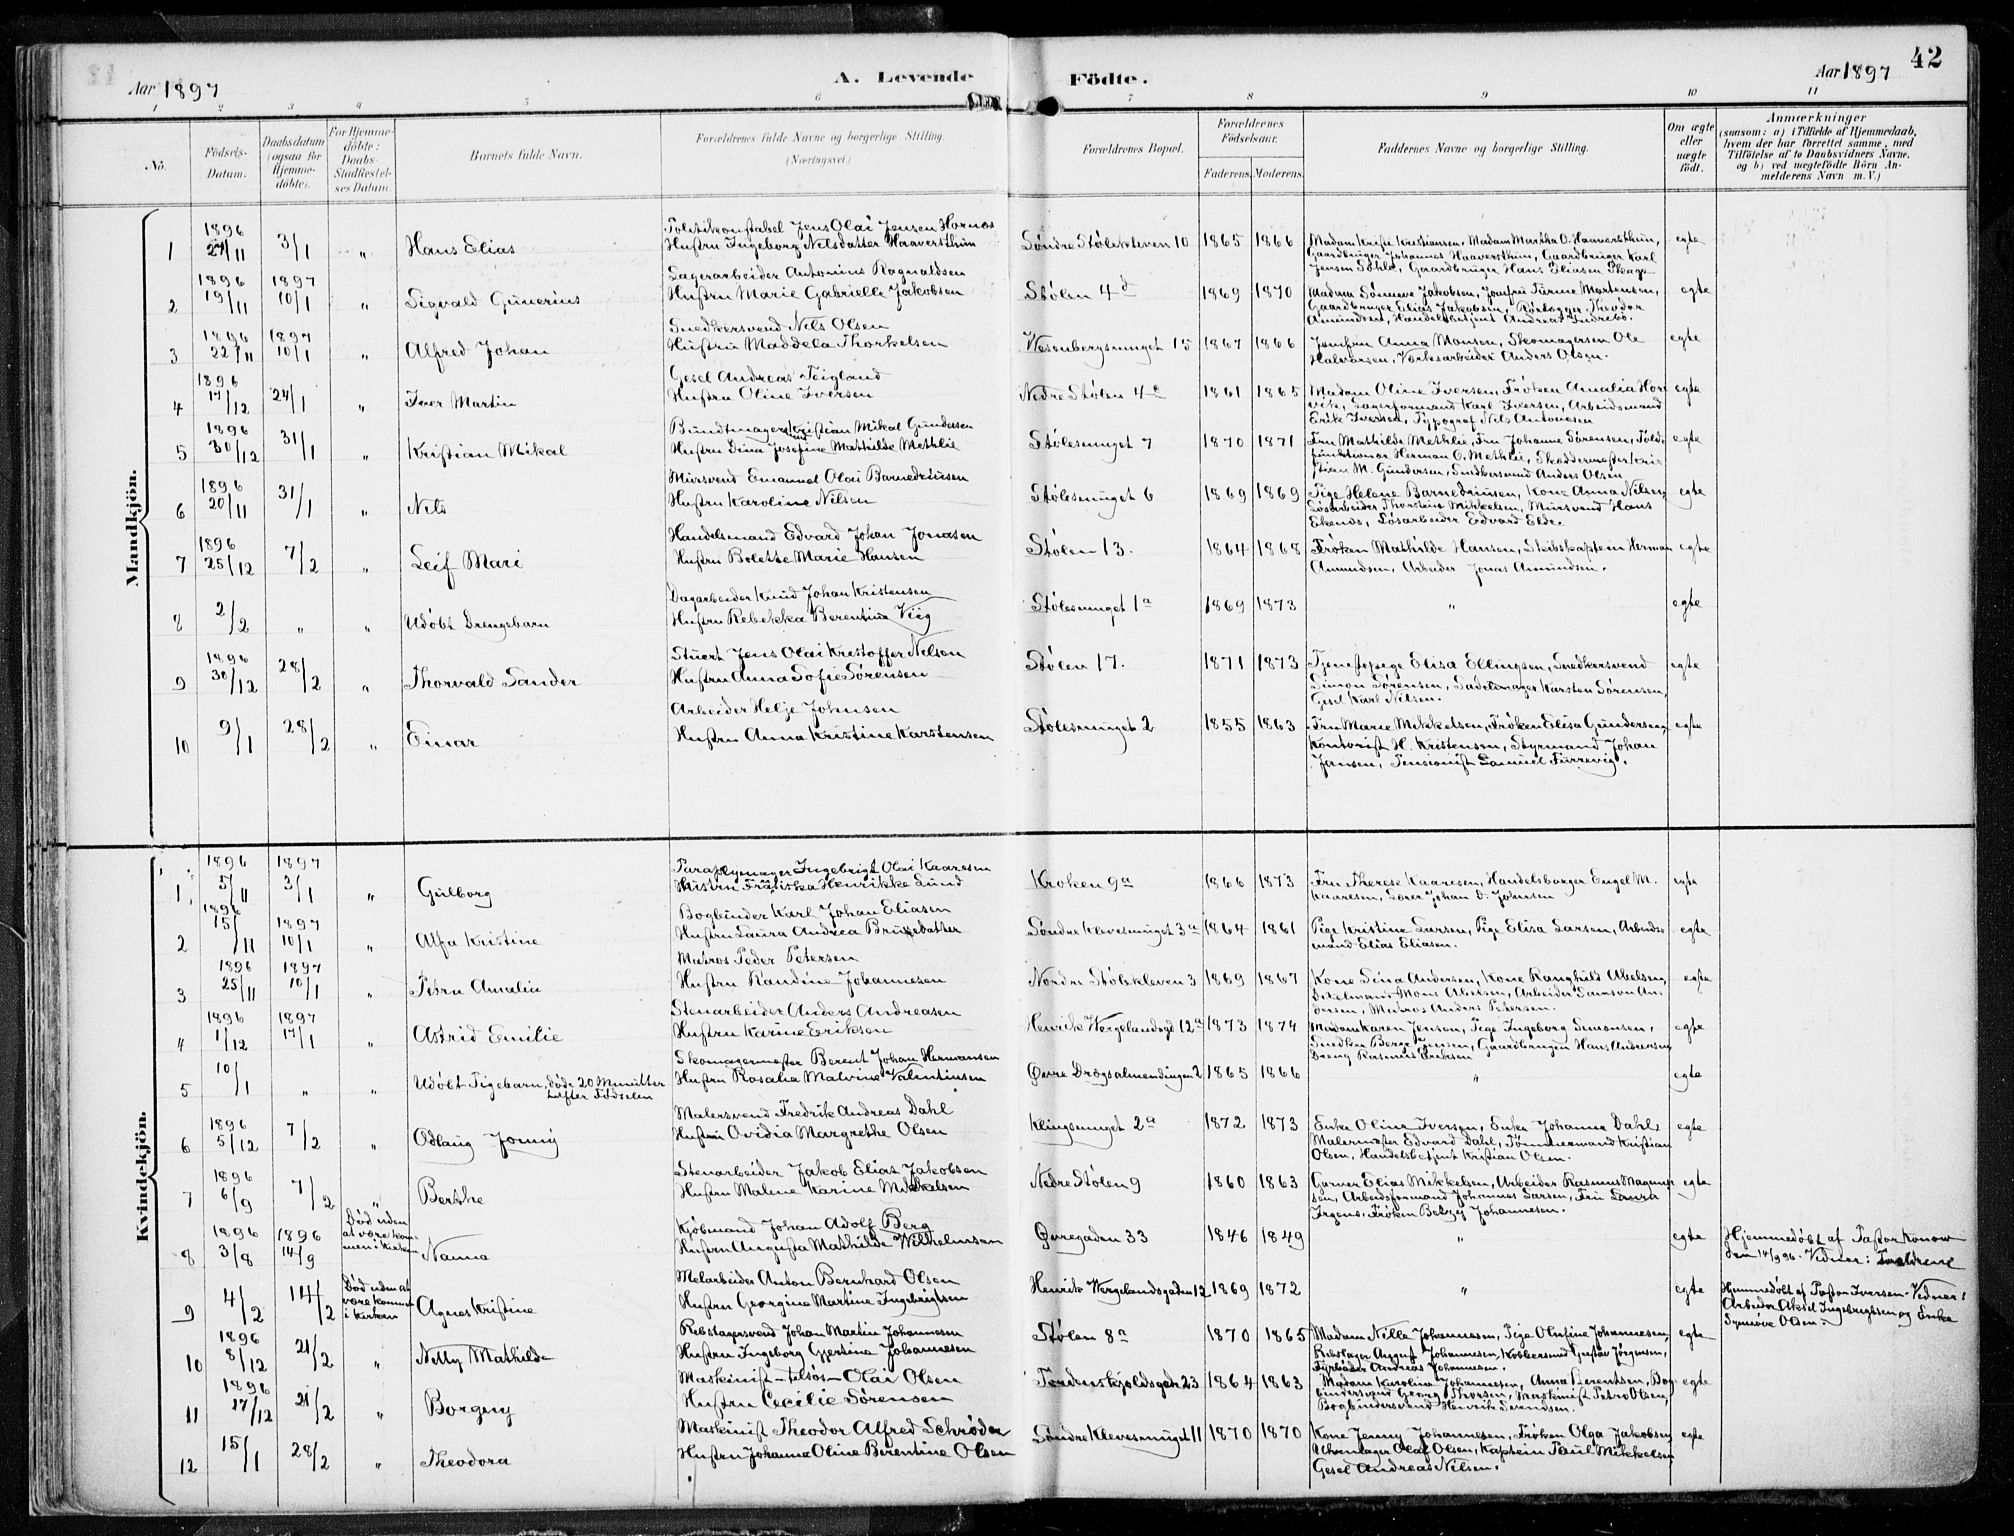 42
Aar 1897
A. Levende Födte.
Aar 1897
1 2 3 4 5 6 7 8 9 10 11
No.
Födsels-
Datum.
Daabsdatum
(ogsaa for
Hjemme-
döbte).
For Hjemme-
döbte:
Daabs-
Stadfæstel-
ses Datum.
Barnets fulde Navn.
Forældrenes fulde Navne og borgerlige Stilling.
(Næringsvei.)
Forældrenes Bopæl.
Forældrenes
Födselsaar.
Faderens. Moderens.
Faddernes Navne og borgerlige Stilling.
Om ægte
eller
uægte
födt.
Anmærkninger
(saasom: a) i Tilfælde af Hjemmedaab,
hvem der har forrettet samme, med
Tilföielse af to Daabsvidners Navne,
og b) ved uægtefödte Börn An-
melderens Navn m. V.)
Mandkjön.
1 1896 27/11 3/1 " Hans Elias
Politikonstabel Jens Olai Jensen Hornos
Hustru Ingeborg Nilsdatter Haaversthun
Søndre Stølekleven 10 1865 1866
Madam Kristi Kristiansen, Madam Martha O. Haaversthun,
Gaardbruger Johannes Haaversthun, Gaardbruger Karl
Jensen Søhle, Gaardbruger Hans Eliasen
egte
2 1896 19/11 1897 10/1 " Sigvald Gunerius
Lagerarbeider Antonius Ragnaldsen
Hustru Marie Gabrielle Jakobsen
Stølen 4d 1869 1870
Madam Sønneve Jakobsen, Jomfru Turine Mortensen,
Gaardbruger Elias Jakobsen, Rørlægger Theodor
Amundsen, Handelsbetjent Andreas Indrebø.
egte
3 1896 22/11 1897 10/1 " Alfred Johan
Snedkersvend Nils Olsen
Hustru Maddela Thorkelsen
Wesenbergsmuget 15 1867 1866
Jomfru Anna Monsen, Skomagersen Ole
Halvorsen, Værksarbeider Anders Olsen.
egte
4 1896 17/12 24/1 " Iver Martin
Gesel Andreas Teigland
Hustru Oline Iversen
Nedre Stølen 4c 1861 1865
Madam Oline Iversen, Frøken Amalia Hor-
vik, Lagerformand Karl Iversen, Arbeidsmand
Erik Iversen, Typograf Nils Antonisen
egte
5 1896 30/12 31/1 " Kristian Mikal
Bundtmager Kristian Mikal Gundersen
Hustru Dina Josefine Mathilde Methlie
Stølesmuget 7 1870 1871
Fru Mathilde Methlie, Fru Johanne Sørensen, Told-
funktionær Herman O. Methlie, Skoddermester Kri-
stian M. Gundersen, Snedkersvend Anders Olsen
egte
6 1896 20/11 31/1 " Nils
Mursvend Emanuel Olai Barnedriusen
Hustru Karoline Nilsen
Stølesmuget 6 1869 1869
Pige Helene Barnedriusen, Kone Anna Nilsen,
Løsarbeider Thorstein Mikkelsen, Mursvend Hans
Ekenæs, Løsarbeider Edvard Elde.
egte
7 1896 25/12 7/2 " Leif Mari
Handelsmand Edvard Johan Jonasen
Hustru Bolette Marie Hansen
Stølen 13. 1864 1868
Frøken Mathilde Hansen, Skibskaptein Herman
Amundsen, Arbeider Jonas Amundsen.
egte
8 2/2 " " Udøbt Drengebarn
Dagarbeider Knud Johan Kristensen
Hustru Rebekka Berentine Viig
Stølesmuget 1a 1869 1873
"
egte
9 1896 30/12 28/2 " Thorvald Sander
Stuert Jens Olai Kristoffer Nilsen
Hustru Anna Sofie Sørensen
Stølen 17. 1871 1873
Tjenstepige Elisa Ellingsen, Snedkersvend
Simon Sørensen, Sadelmager Karsten Sørensen,
Gesel Karl Nilsen.
egte
10 9/1 28/2 " Einar
Arbeider Helje Johnsen
Hustru Anna Kristine Karstensen
Stølesmuget 2 1855 1863
Fru Marie Mikkelsen, Frøken Elisa Gundersen,
Kontorist H. Kristensen, Styrmand Johan
Jansen, Pensionist Samuel Furrevig.
egte
Kvindekjön.
1 1896 5/11 1897 3/1 " Gulborg
Paraplymager Ingebrigt Olai Kaaresen
Hustru Fransiska Henrikke Lund
Kroken 9a 1866 1873
Fru Therese Kaaresen, Handelsborger Engel M.
Kaaresen, Lærer Johan D. Johnsen
egte
2 1896 15/11 1897 10/1 " Alfa Kristine
Bogbinder Karl Johan Eliasen
Hustru Laura Andrea Brunedatter
Søndre Klevesmuget 3a 1864 1861
Pige Kristine Larsen, Pige Elisa Larsen, Arbeids-
mand Elias Eliasen.
egte
3 1896 25/11 1897 10/1 " Petra Amalia
Matros Peder Petersen
Hustru Randine Johannesen
Nordre Stølekleven 3 1869 1867
Kone Sina Andersen, Kone Ranghild Abelsen,
Dækelmand Mons Abelsen, Arbeider Samson An-
dersen, Matros Anders Petersen.
egte
4 1896 1/12 1897 17/1 " Astrid Emilie
Stenarbeider Anders Andreasen
Hustru Karine Eriksen
Henrik Wergelandsgd 12a 1873 1874
Madam Karen Jensen, Pige Ingeborg Simonsen,
Snedker Berge Jensen, Gaardbruger Hans Andreasen,
Dreng Rasmus Eriksen
egte
5 10/1 " " Udøbt Pigebarn, døde 20 Minutter
Efter Fødselen
Skomagermester Berent Johan Hermansen
Hustru Rosalia Malvine Valentinsen
Øvre Drægsalmendingen 2 1865 1866
"
egte
6 1896 5/12 7/2 " Odlaug Jonny
Malersvend Fredrik Andreas Dahl
Hustru Ovidia Margrethe Olsen
Klingsmuget 2a 1872 1873
Enke Oline Iversen, Enke Johanna Dahl,
Malermester Edvard Dahl, Tømmermand Kristian
Olsen, Handelsbetjent Kristian Olsen.
egte
7 1896 6/9 7/2 " Berthe
Stenarbeider Jakob Elias Jakobsen
Hustru Malene Karine Mikkelsen
Nedre Stølen 9 1860 1863
Garver Elias Mikkelsen, Arbeider Rasmus Magnus-
sen, Arbeidsformand Johannes Larsen, Fru Laura
Irgens, Frøken Betzy Johannesen.
egte
8 1896 3/8 1896 14/9 Død uden
at være kom-
men i kirken Nanna
Kjøbmand Johan Adolf Berg
Hustru Augusta Mathilde Wilhelmsen
Øvregaden 33 1846 1849
"
egte
Hjemmedøbt af Pastor Konow
den 14/9 96. Vidner: Forældrene
9 4/2 14/2 Død uden at
være kommen
i kirken Agnes Kristine
Melarbeider Anton Bernhard Olsen
Hustru Georgine Martine Ingebrigtsen
Henrik Wergelandsgaden 12 1869 1872
"
egte
Hjemmedøbt af Pastor Iversen. Vidner:
Arbeider Aksel Ingebrigtsen og Enke
Synnøve Olsen.
10 1896 8/12 21/2 " Nelly Mathilde
Rebslagersvend Johan Martin Johannesen
Hustru Ingeborg Gjertine Johannesen
Stølen 8a 1870 1865
Madam Nille Johannesen, Pige Olufine Johannesen,
Rebslager August Johannesen, Kobbersmed Gustav Jørgensen,
Fyrbøder Andreas Johannesen.
egte
11 1896 27/12 21/2 " Borgny
Maskinist - Tilsøs - Olai Olsen
Hustru Cecilie Sørensen
Tordenskjoldsgade 23 1864 1863
Madam Karoline Johannesen, Anna Berentsen, Bog-
bindersvend Georg Thorsen, Maskinist Peter Olsen,
Bogbindersvend Henrik Svendsen.
egte
12 15/1 28/2 " Theodora
Maskinist Theodor Alfred Schrøder
Hustru Johanna Oline Berentine Olsen
Søndre Klevesmuget 11 1870 1870
Kone Jenny Johannesen, Frøken Olga Jakobsen,
Uhrmager Olaf Olsen, Kaptein Paul Mikkelsen
Gesel Andreas Nilsen.
egte